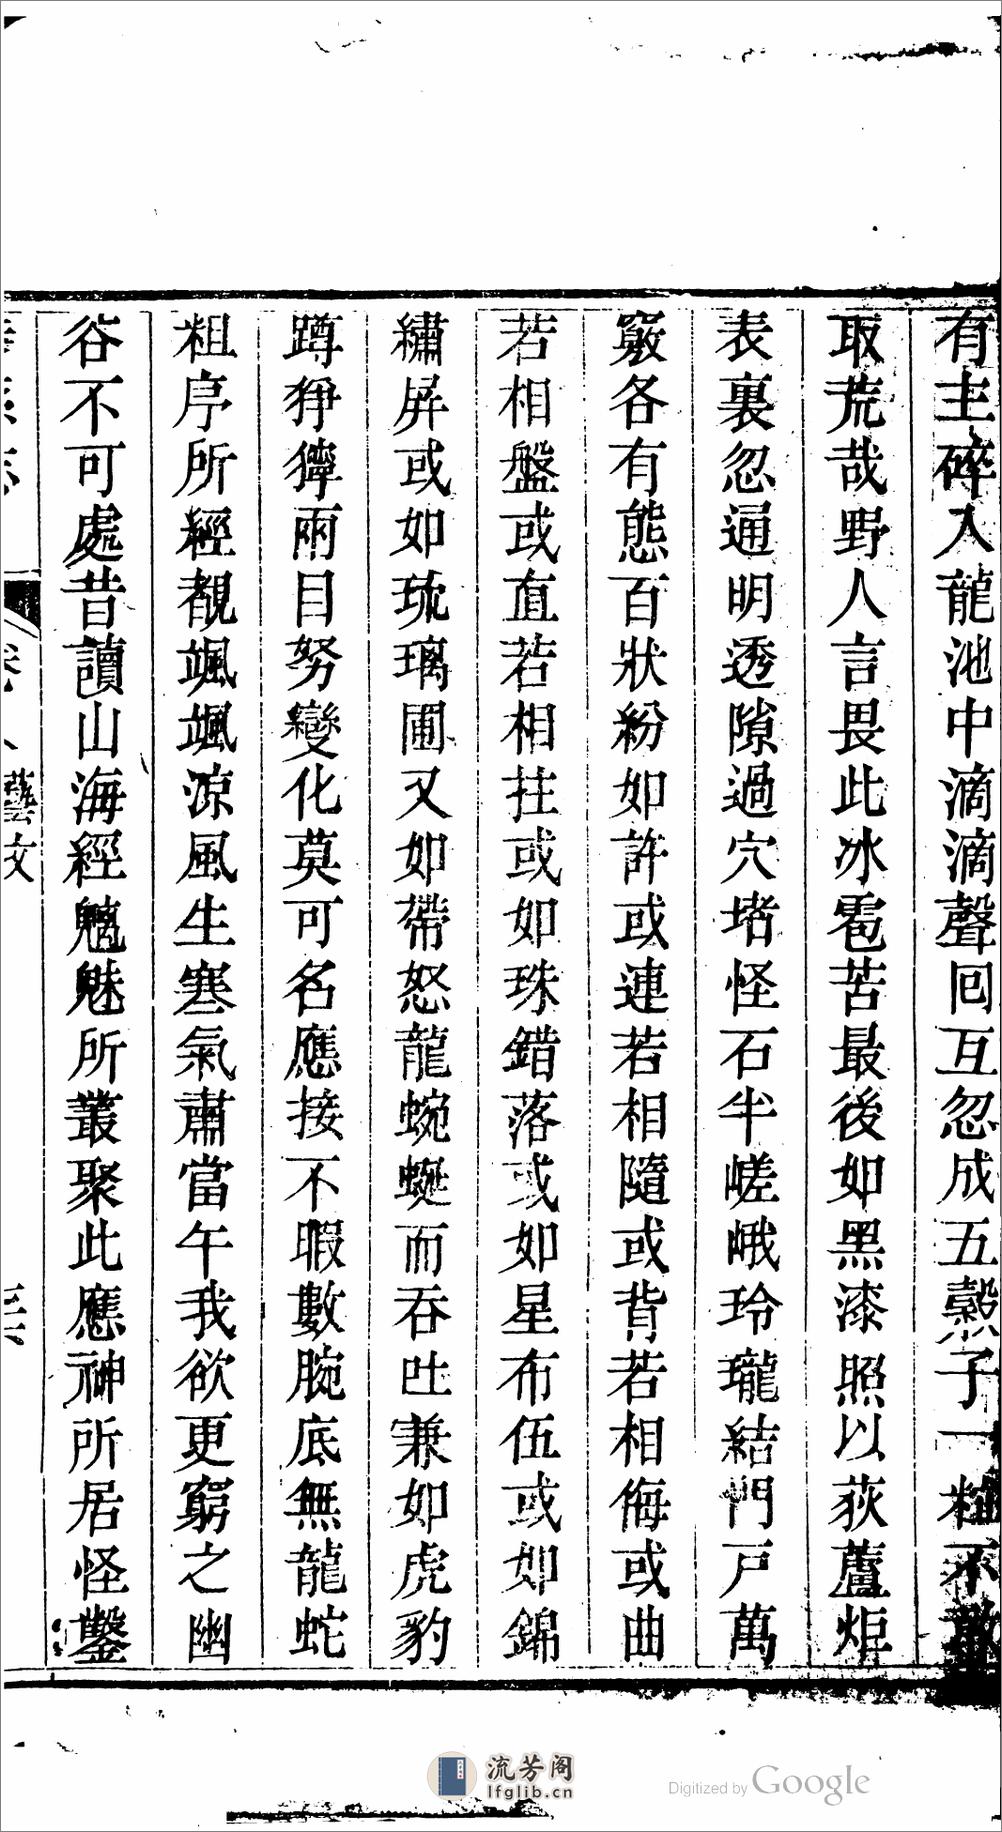 有主碎入龍池中滴滴聲回互忽成五穀子一粒不敢
取荒哉野人言畏此冰雹苦最後如黑漆照以荻蘆炬
表裏忽通明透隙過穴堵怪石半嵯峨玲瓏結門戸萬
竅各有態百狀紛如許或連若相隨或背若相侮或曲
若相盤或直若相拄或如珠錯落或如星布伍或如錦
繡屏或如琉璃圃又如帶怒龍蜿蜒而吞吐兼如虎豹
蹲猙獰兩目努變化莫可名應接不暇數腕底無龍蛇
粗序所經覩颯颯涼風生寒氣肅當午我欲更窮之幽
谷不可處昔讀山海經魑魅所叢聚此應神所居怪鑿
藝文
流芳阁
lfglib.cn
Digitized by Google